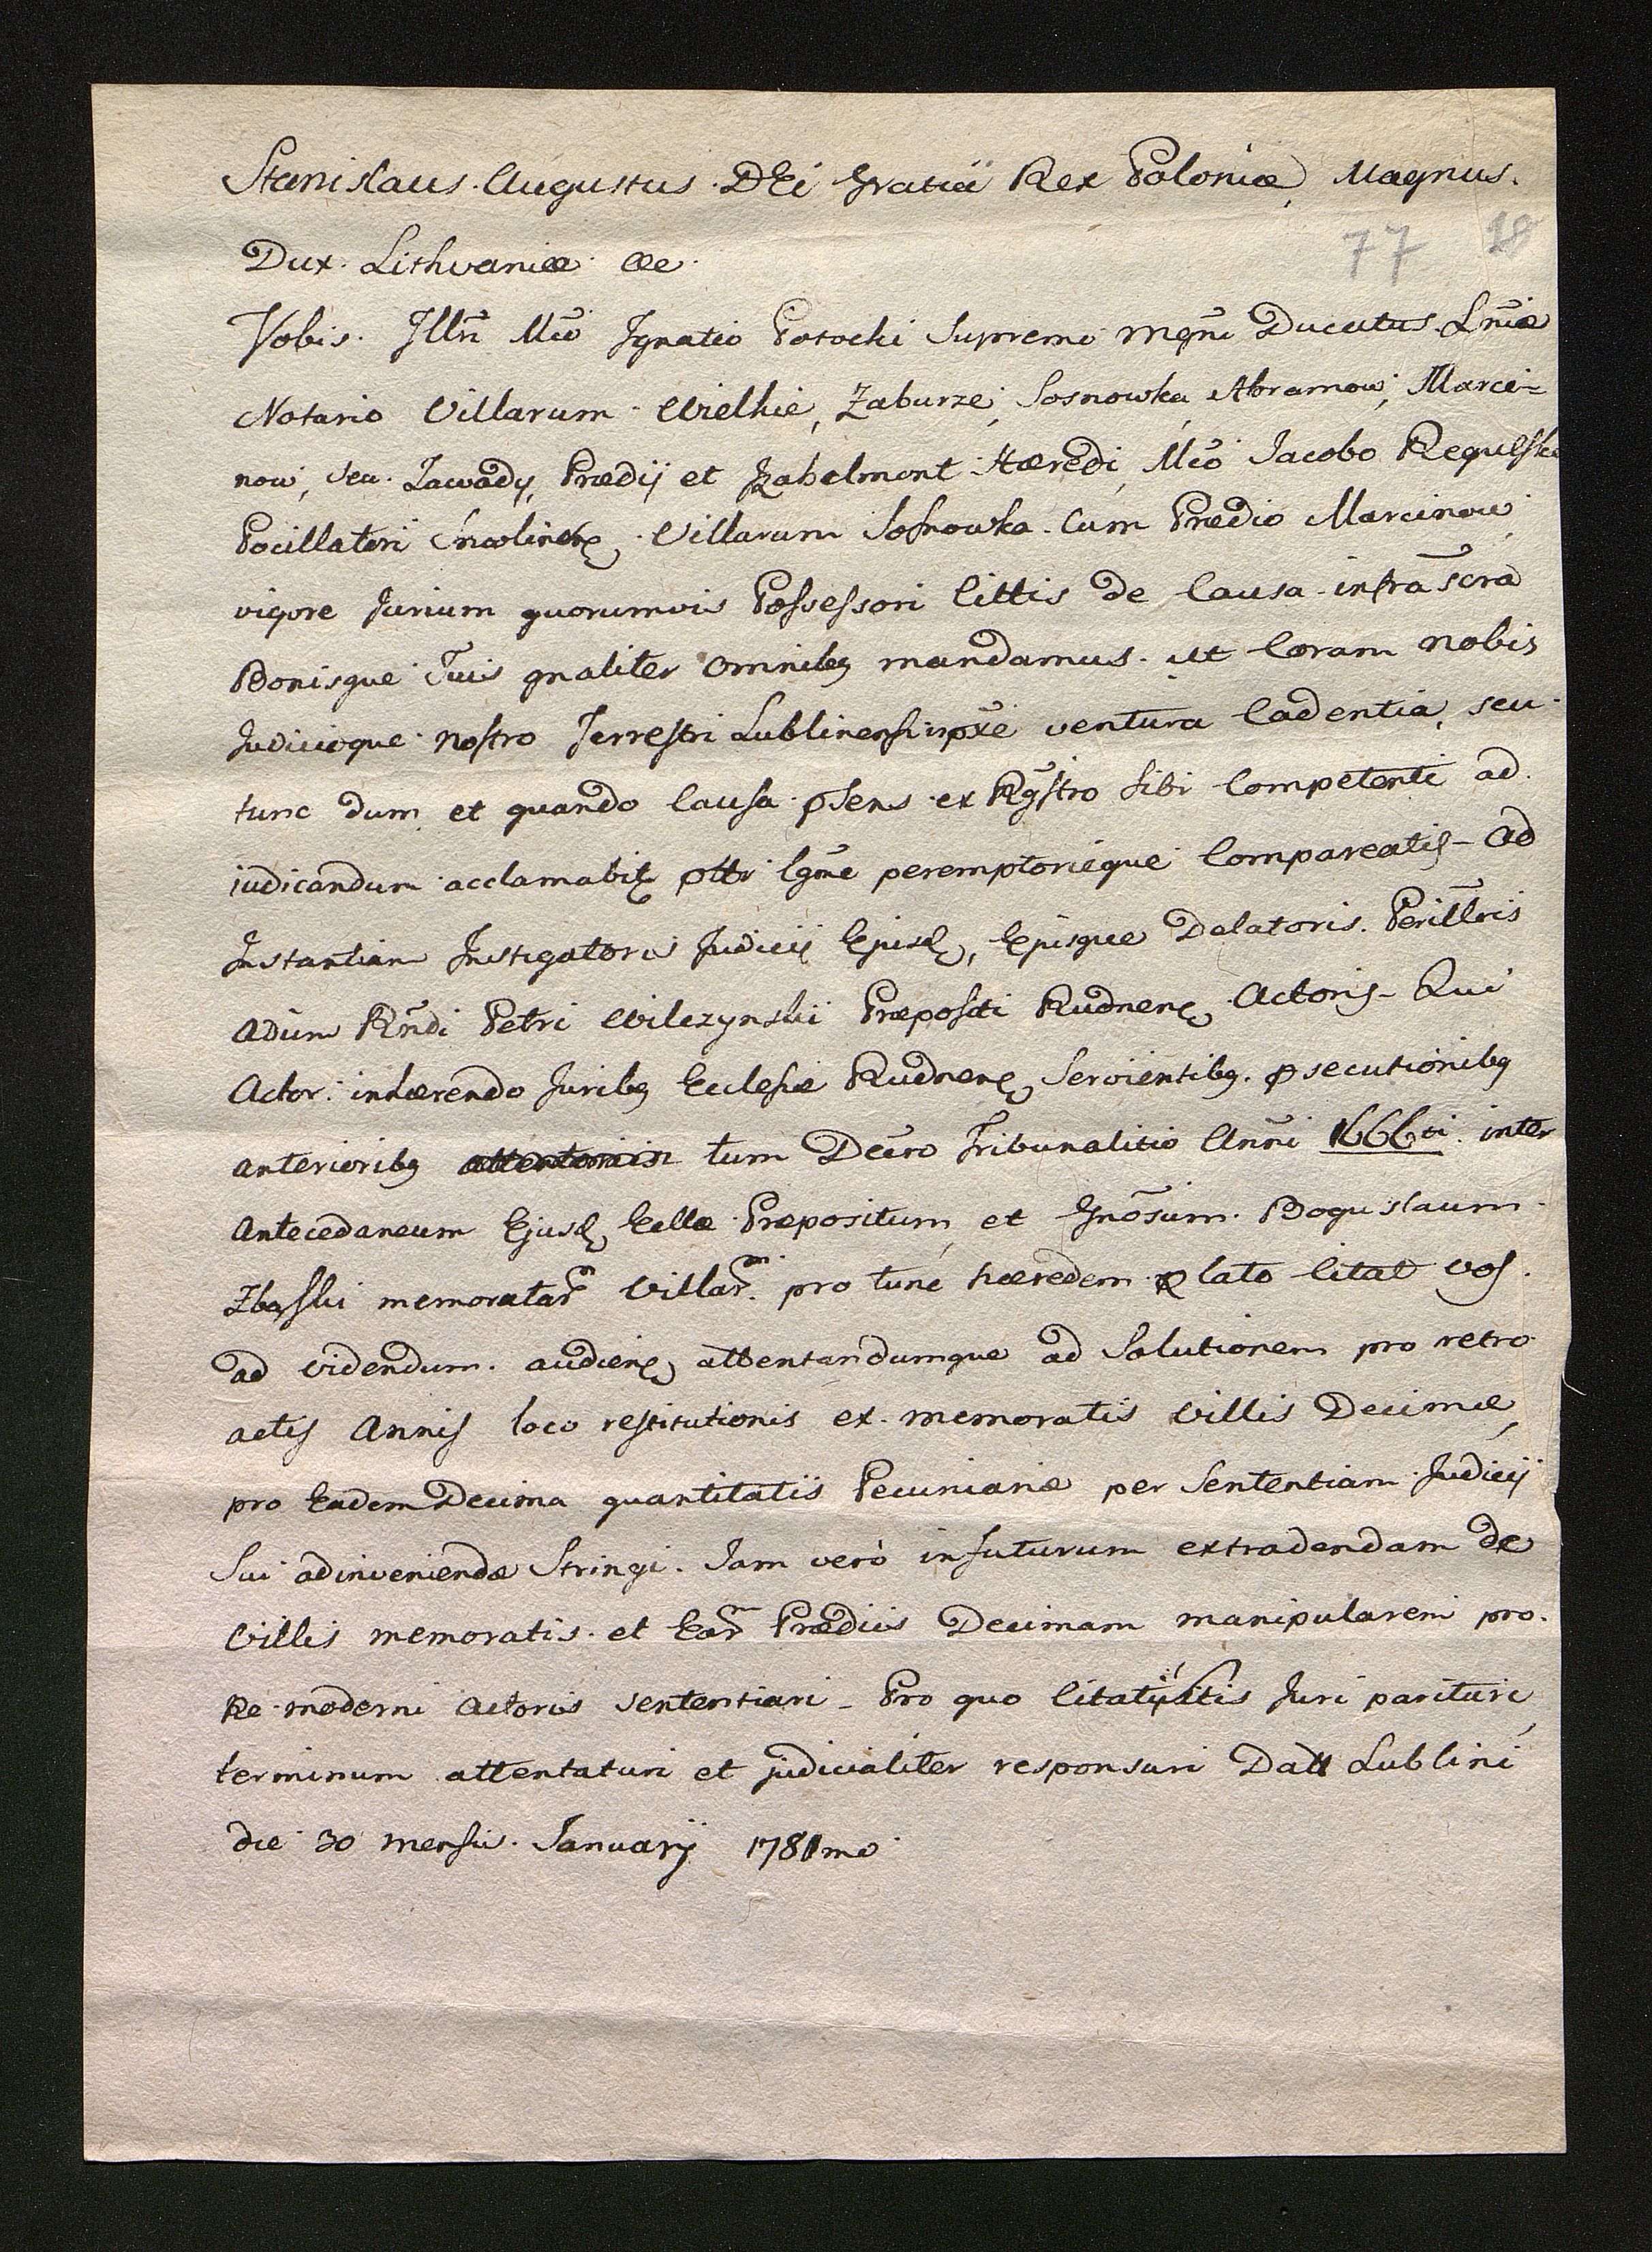 Stanislaus Augustus DEi Gratiâ Rex Poloniæ, Magnus
77 18
Dux Lithvaniæ &c
Vobis Illri Mco Ignatio Potocki Supremo Mgni Ducatus Lniæ
Notario Villarum Wielkie, Zaburze, Sosnowka Abramow, Marci-
now, seu Zawady, Prædij et Izabelmont Hæredi, Mco Jacobo Regulski
Pocillatori Villarum Sosnowka Cum Prædio Marcinow
vigore Jurium quorumvis Possessori Cittis de Causa infra scra
Bonisque Tuis gnaliter omnibq mandamus ut Coram nobis
Judicioque nostro Terrestri Lublinensi ventura Cadentia, seu
tunc dum et quando Causa psens ex Rgstro sibi Competenti ad
iudicandum acclamabit pttr Lgme peremptorieque Compareatis - Ad
Instantiam Instigatoris Judicij Ejusd, Ejusque Delatoris Perillris
Adūm Rndi Petri Wilczynskii Præpositi Rudnen Actoris - Qui
Actor inhærendo Juribq Ecclesiæ Rudnen Servientibq psecutionibq
anterioribq tum Decro Tribunalitio Anni 1666ti inter
Antecedaneum Ejusd Ecclæ Præpositum et Gnosum Boguslaum
Zbąski memoratar Villar pro tunc hæredem p lato Citat vos
ad videndum audien attentandumque ad Solutionem pro retro
actis Annis loco restitutionis ex memoratis Villis Decimæ
pro Eadem Decima quantitatis Pecuniariæ per Sententiam Judicij
Sui adinveniendæ Stringi. Jam verò in futurum extradendam de
Villis memoratis et Ear Prædiis Decimam manipularem pro
Re moderni Actoris sententiari - Pro quo Citati sitis Juri parituri
terminum attentaturi et judicialiter responsuri Datt Lublini
die 30 mensis Januarij 1781mo